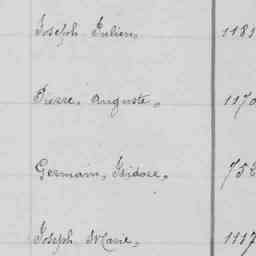 Joseph Julien,
1181
Pierre, Auguste,
1170
Germain, Isidore,
752
Joseph Marie,
1117